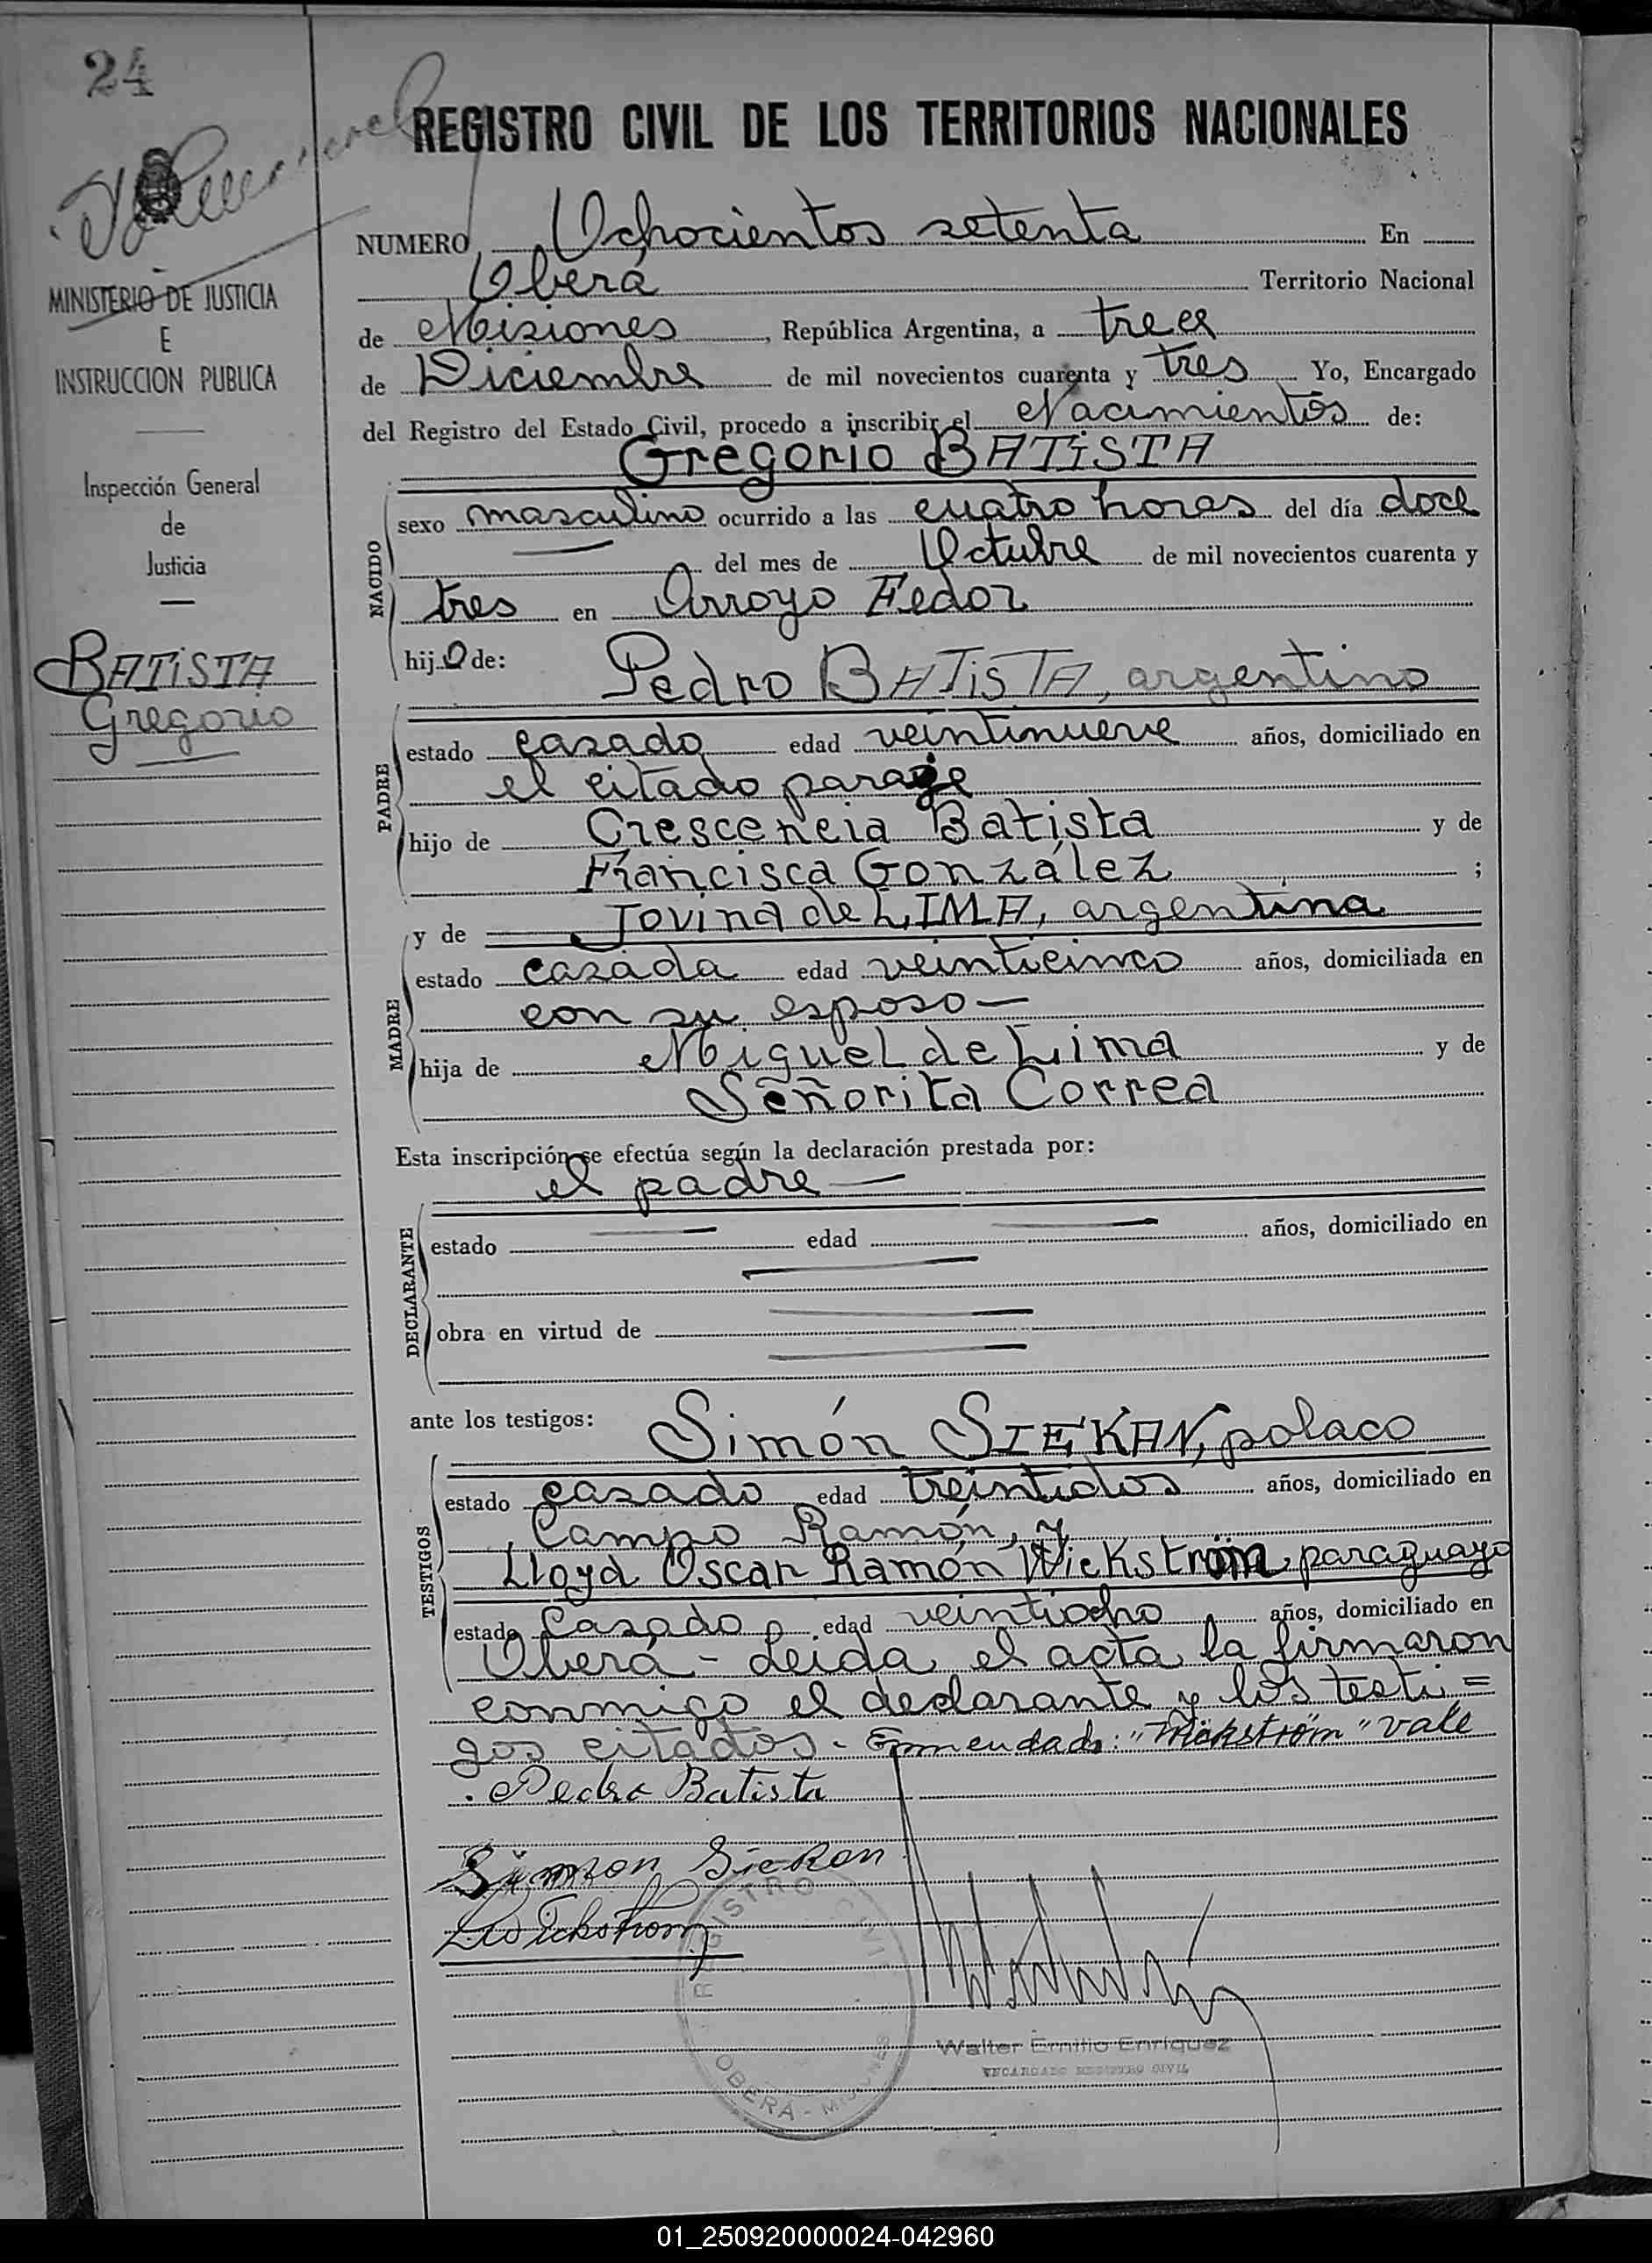 24
REGISTRO CIVIL DE LOS TERRITORIOS NACIONALES
NUMERO Ochocientos setenta En
Oberá Territorio Nacional
de Misiones, República Argentina, a trece
de Diciembre de mil novecientos cuarenta y tres Yo, Encargado
del Registro del Estado Civil, procedo a inscribir el Nacimientos de:
Gregorio BATISTA
NACIDO
sexo masculino ocurrido a las cuatro horas del día doce
del mes de Octubre de mil novecientos cuarenta y
tres en Arroyo Fedor
hijo de: Pedro BATISTA, argentino
PADRE
estado casado edad veintinueve años, domiciliado en
el citado paraje
hijo de Crescencia Batista y de
Francisca González ;
y de Jovina de LIMA, argentina
MADRE
estado casada edad veinticinco años, domiciliada en
con su esposo —
hija de Miguel de Lima y de
Señorita Correa
Esta inscripción se efectúa según la declaración prestada por:
el padre —
DECLARANTE
estado — edad — años, domiciliado en
obra en virtud de
ante los testigos: Simón SIEKAN, polaco
TESTIGOS
estado casado edad treintidos años, domiciliado en
Campo Ramón, y
Lloyd Oscar Ramón Wickström, paraguayo
estado Casado edad veintiocho años, domiciliado en
Oberá - Leida el acta la firmaron
conmigo el declarante y los testi=
gos citados. - Enmendado: "Wickström" vale
Pedro Batista
Simon Siekan
Wickstrom
REGISTRO CIVIL
OBERÁ - MISIONES
Walter Emilio Enriquez
ENCARGADO REGISTRO CIVIL
MINISTERIO DE JUSTICIA
E
INSTRUCCION PUBLICA
Inspección General
de
Justicia
BATISTA
Gregorio
01_250920000024-042960